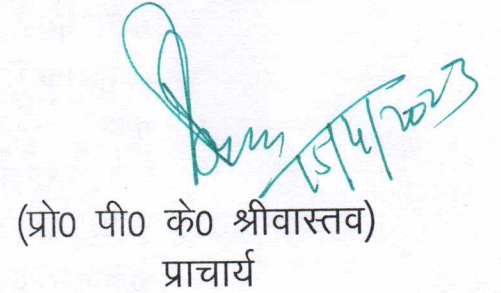 15/4/2023
(प्रो0 पी0 के0 श्रीवास्तव)
प्राचार्य